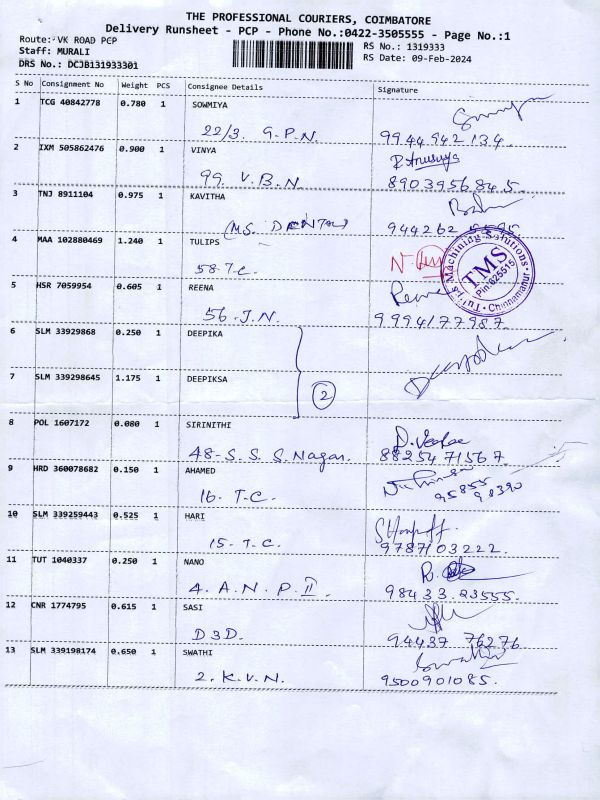 THE PROFESSIONAL COURIERS, COIMBATORE
Delivery Runsheet - PCP - Phone No.:0422-3505555 - Page No.:1
Route: VK ROAD PCP
RS No.: 1319333
Staff: MURALI
RS Date: 09-Feb-2024
DRS No.: DCJB131933301
S No Consignment No Weight PCS Consignee Details Signature
1 TCG 40842778 0.780 1 SOWMIYA
22/3. G.P.N. 99 44 942 134.
2 IXM 505862476 0.900 1 VINYA
99. V.B.N 8903956845.
3 TNJ 8911104 0.975 1 KAVITHA
(M.S. DENTAL) 944262
4 MAA 102880469 1.240 1 TULIPS
58-T.C.
Machining Solutions
TMS
Pin 625515
Chinnamanur
5 HSR 7059954 0.605 1 REENA
56-J.N. 9994177987.
6 SLM 33929868 0.250 1 DEEPIKA
2
7 SLM 339298645 1.175 1 DEEPIKSA
8 POL 1607172 0.080 1 SIRINITHI
48-S.S.S.Nagar. 8825471567
9 HRD 360078682 0.150 1 AHAMED
16. T.C. 95855 98390
10 SLM 339259443 0.525 1 HARI
15. T.C. 9787103222.
11 TUT 1040337 0.250 1 NANO
4. A.N.P.II. 98433.23555.
12 CNR 1774795 0.615 1 SASI
D3D. 94437 76276
13 SLM 339198174 0.650 1 SWATHI
2. K.V.N. 9500901085.